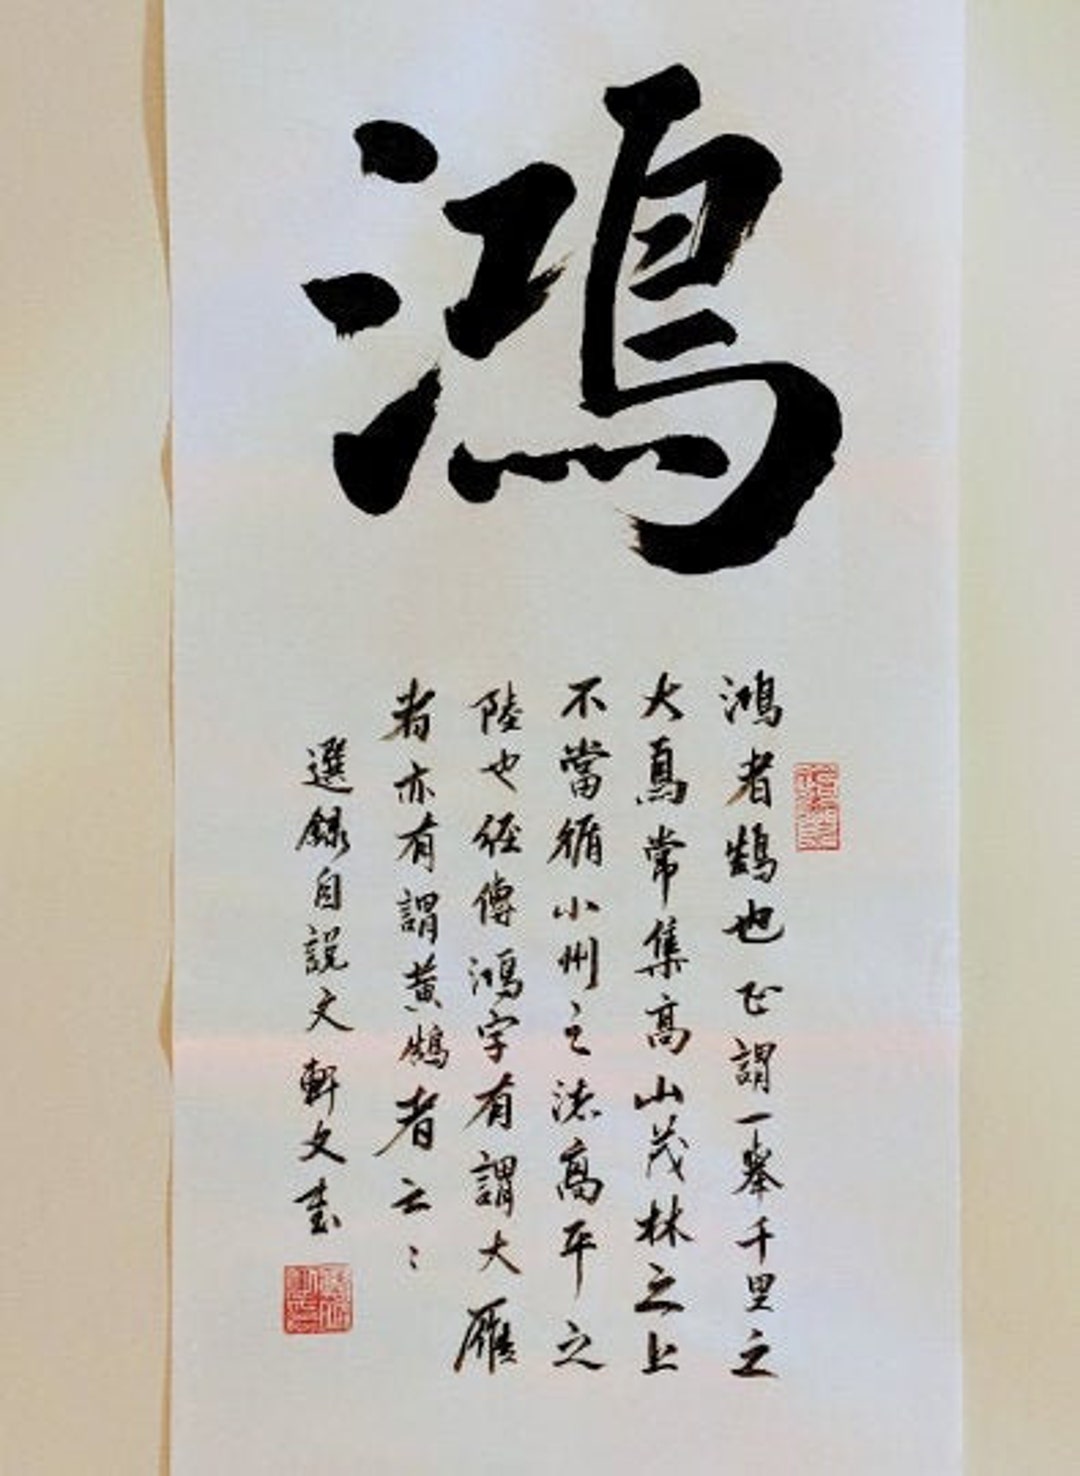 鴻
鴻者鵠也正謂一舉千里之
大鳥常集高山茂林之上
不當循小州之渚高平之
陸也經傳鴻字有謂大雁
者亦有謂黃鵠者云云
選錄自說文軒文書